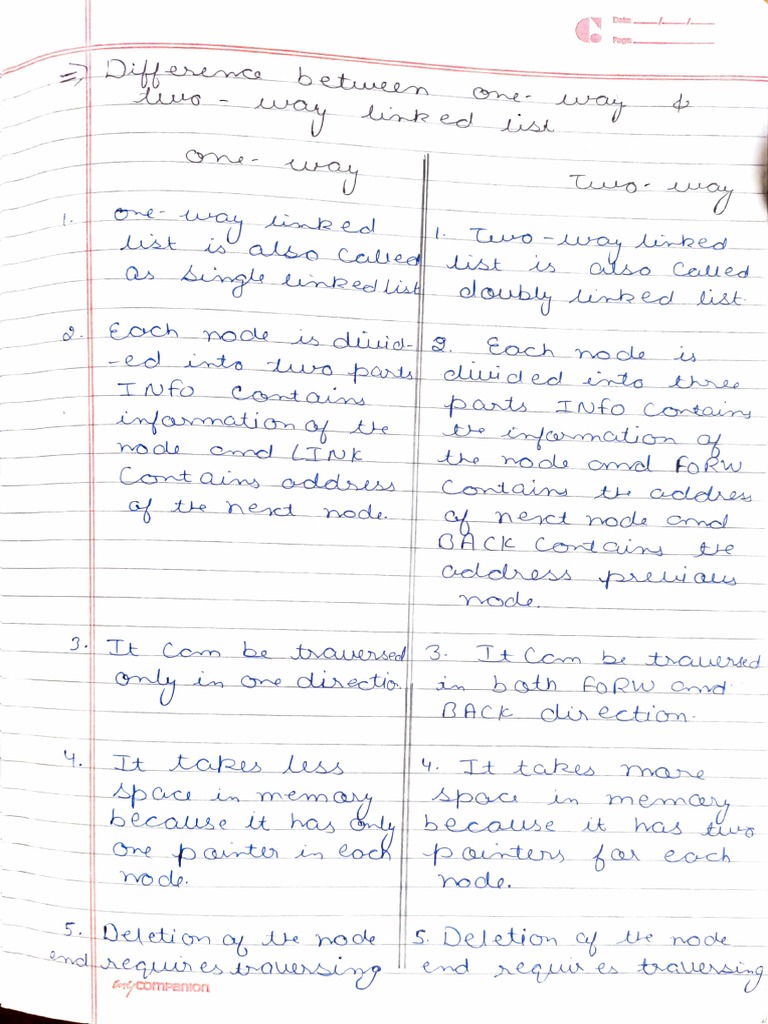 Date __/__/__
Page
⇒ Difference between one-way &
two-way linked list
one-way
1. one-way linked
list is also called
as single linked list
2. Each node is divid-
-ed into two parts
INFO contains
information of the
node and LINK
contains address
of the next node.
3. It can be traversed
only in one directio
4. It takes less
space in memory
because it has only
one pointer in each
node.
5. Deletion of the node
end requires traversing
Two-way
1. Two-way linked
list is also called
doubly linked list.
2. Each node is
divided into three
parts INFO contains
the information of
the node and FORW
contains the address
of next node and
BACK contains the
address previous
node.
3. It can be traversed
in both FORW and
BACK direction.
4. It takes more
space in memory
because it has two
pointers for each
node.
5. Deletion of the node
end requires traversing
any companion